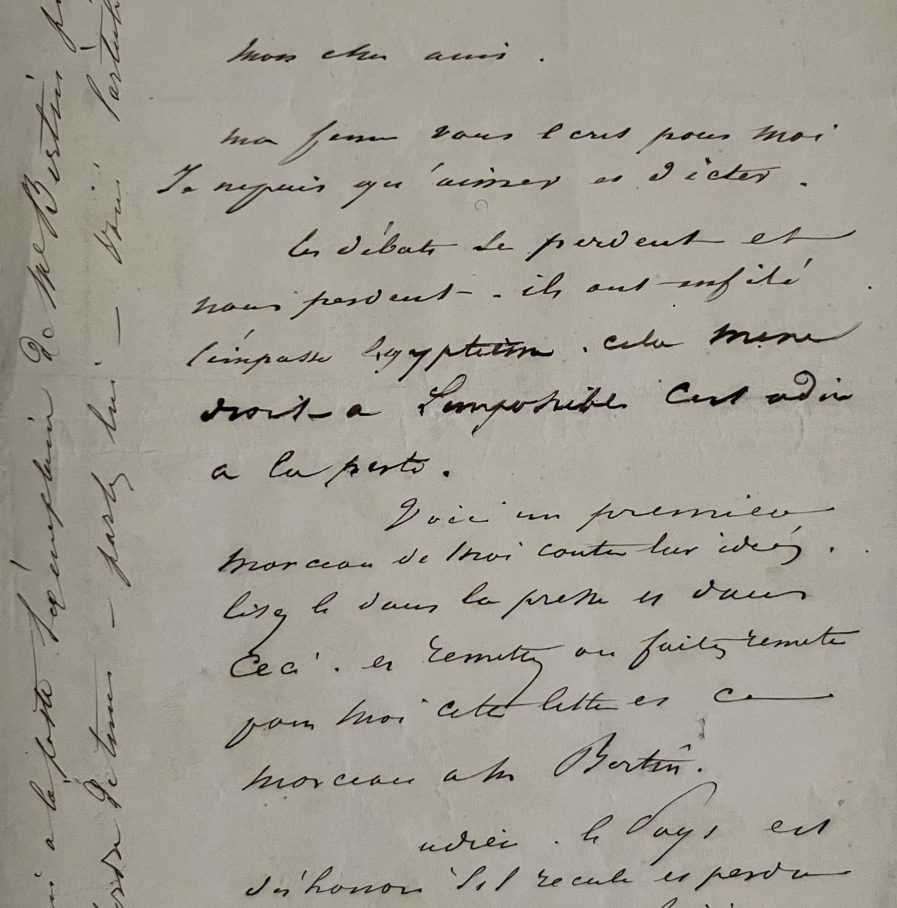 mon cher ami.
ma femme vous ecrit pour moi
Je ne puis qu'aimer et dicter.
les débats se perdent et
nous perdent. ils ont enfilé
l'impasse Egyptienne. cela mene
droit a L'impossible C'est adire
a la perte.
Voici un premier
morceau de moi contre leur idées.
lisez le dans la presse et dans
Ceci. et remettez ou faites remettre
pour moi cette lettre et ce
morceau a M Bertin.
adieu. le Pays est
déshonoré s'il recule et perdu
a la poste l'exemplaire de Mr Bertin
détenus - parlez lui -